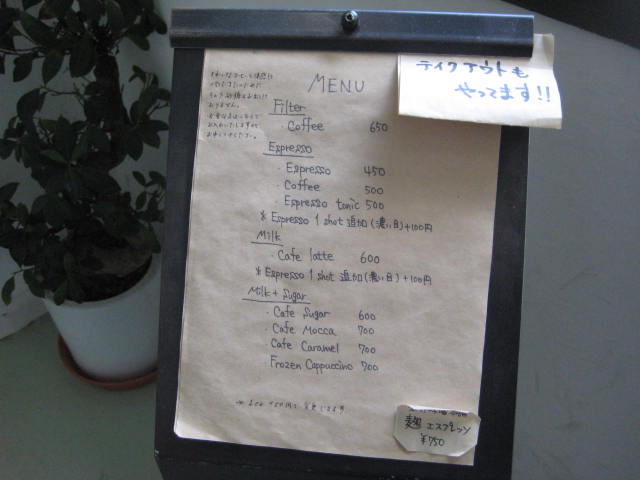 MENU
テイクアウトも
やってます!!
Filter
・Coffee 650
Espresso
・Espresso 450
・Coffee 500
・Espresso tonic 500
* Espresso 1 shot 追加(濃い目)+100円
Milk
・Cafe latte 600
* Espresso 1 shot 追加(濃い目)+100円
Milk + Sugar
・Cafe Sugar 600
・Cafe Mocca 700
Cafe Caramel 700
Frozen Cappuccino 700
麹 エスプレッソ
¥750